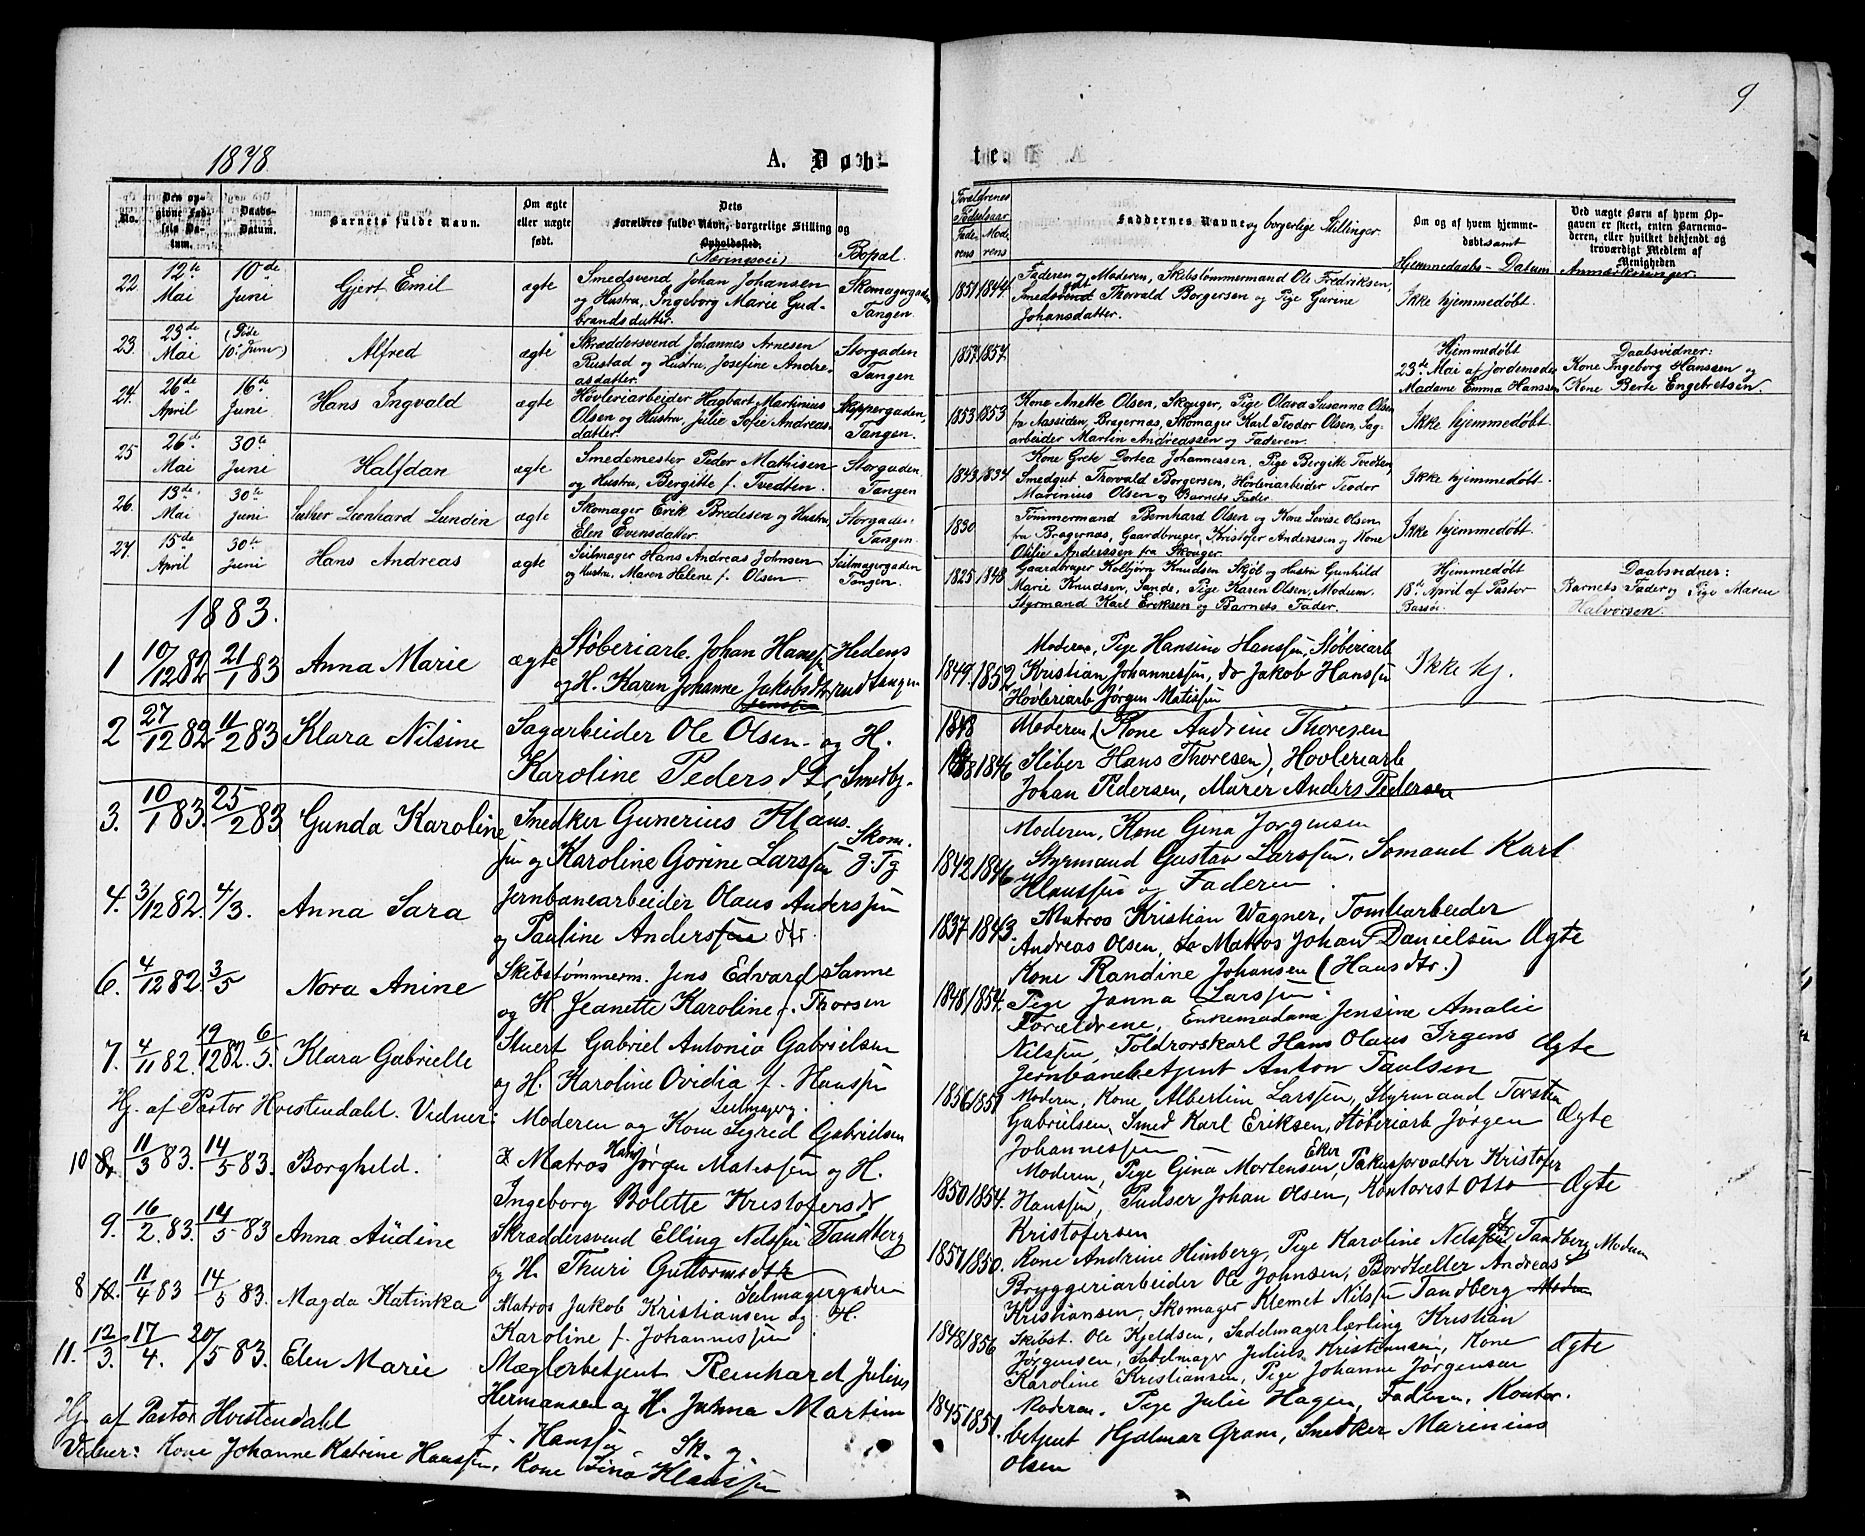 9
1878.
A. Døb-
te.
No.
Den op-
givne Fød-
sels Da-
tum.
Daabs-
Datum.
Barnets fulde Navn.
Om ægte
eller uægte
født.
Dets
Forældres fulde Navn, borgerlige Stilling og
Opholdssted.
Bopæl.
Forældrenes
Fødselsaar
Fade-
rens
Mode-
rens
Faddernes Navne og borgerlige Stillinger.
Om og af hvem hjemme-
døbt samt
Hjemmedaabs-Datum
Ved uægte Børn af hvem Op-
gaven er skeet, enten Barnemo-
deren, eller hvilket bekjendt og
troværdigt Medlem af
Menigheden
Anmærkninger.
22. 12te Mai 10de Juni Gjert Emil ægte
Smedsvend Johan Johansen
og Hustru, Ingeborg Marie Gud-
brandsdatter.
Skomagergaden,
Tangen.
1851 1844
Faderen og Moderen, Skibstømmermand Ole Fredriksen,
Smedsvend Thorvald Borgersen og Pige Gurine
Johansdatter.
Ikke hjemmedøbt.
23. 23de Mai 10. Juni Alfred ægte
Skræddersvend Johannes Arnesen
Rustad og Hustru, Josefine Andre-
asdatter.
Storgaden
Tangen
1857 1857
Hjemmedøbt
23de Mai af Jordemoder
Madame Emma Hanssen
Daabsvidner:
Kone Ingeborg Hansen og
Kone Berte Engebretsen.
24. 26de April 16de Juni Hans Ingvald ægte
Høvleriarbeider Hagbart Martinius
Olsen og Hustru, Julie Sofie Andreas-
datter.
Skippergaden,
Tangen.
1853 1853
Kone Anette Olsen, Skouger, Pige Olava Susanna Olsen
fra Aassiden, Bragernæs, Skomager Karl Teodor Olsen, Sag-
arbeider Martin Andreassen og Faderen.
Ikke hjemmedøbt.
25 26de Mai 30te Juni Halfdan ægte
Smedemester Peder Mathisen
og Hustru, Bergitte f. Tvedten.
Storgaden.
Tangen
1843 1834
Kone Grete Dortea Johannessen, Pige Bergitte Tvedten,
Smedgut Thorvald Borgersen, Høvleriarbeider Teodor
Marinius Olsen og Barnets Fader.
Ikke hjemmedøbt.
26. 13de Mai 30te Juni Luther Leonhard Lundin ægte
Skomager Erik Bredesen og Hustru,
Elen Evensdatter.
Storgaden.
Tangen.
1830
Tømmermand Bernhard Olsen og Kone Lovise Olsen
fra Bragernæs, Gaardbruger, Kristofer Anderssen og Kone
Olifie Anderssen fra Skouger.
Ikke hjemmedøbt.
27. 15de April 30te Juni Hans Andreas ægte
Seilmager Hans Andreas Johnsen
og Hustru, Maren Helene f. Olsen.
Seilmagergaden
Tangen.
1825 1848
Gaardbruger Kolbjørn Knudsen Skjøl og Hustru Gunhild
Marie Knudsen, Sande, Pige Karen Olsen, Modum.
Styrmand Karl Eriksen og Barnets Fader.
Hjemmedøbt
18de April af Pastor
Bassøe.
Daabsvidner:
Barnets Fader og Pige Maren
Halvorsen.
1883.
1 10/12 82 21/1 83 Anna Marie ægte
Støberiarb. Johan Hanssen
og H. Karen Johanne Jakobsdtr
Hedens
rud Tangen
1849. 1852.
Moderen, Pige Hansine Hanssen, Støberiarb
Kristian Johannessen, do Jakob Hanssen
Høvleriarb Jørgen Matissen
Ikke hj.
2 27/12 82 11/2 83 Klara Nilsine
Sagarbeider Ole Olsen og H.
Karoline Pedersdtr, Smedbj.
1848 1846
Moderen (Kone Andrine Thoresen
Støber Hans Thoresen), Høvleriarb
Johan Pedersen, Murer Anders Pedersen
3. 10/1 83. 25/2 83 Gunda Karoline
Snedker Gunerius Klaus-
sen og Karoline Gorine Larssen
Skom.
g. Tg
1842 1846
Moderen, Kone Gina Jørgensen
Styrmand Gustav Larssen, Sømand Karl
Klaussen og Faderen.
4. 3/12 82. 4/3. Anna Sara
Jernbanearbeider Olaus Anderssen
og Pauline Anderssen dtr.
1837 1843.
Matros Kristian Wagner, Tomtearbeider
Andreas Olsen, do Matros Johan Danielsen
Kone Randine Johansen (Hansdtr.)
Pige Janna Larssen.
Ægte
6. 4/12 82. 3/5 Nora Anine
Skibstømmerm. Jens Edvard Sanne
og H. Jeanette Karoline f. Thorsen
1848 1854.
Forældrene, Enkemadame Jensine Amalie
Nilssen, Toldrorskarl Hans Olaus Irgens
Jernbanebetjent Anton Paulsen
Ægte
7. 4/11 82. 19/12 82. 6/5. Klara Gabrielle
Stuert Gabriel Antonio Gabrielsen
og H. Karoline Ovidia f. Hanssen
Hj. af Pastor Hvistendahl. Vidner: Moderen og Kone Sigrid Gabrielsen
Seilmagerg.
1856 1851
Moderen, Kone Albertine Larssen, Styrmand Torsten
Gabrielsen, Smed Karl Eriksen, Støberiarb Jørgen
Johannessen
Ægte
10 11/3 83. 14/5 83. Borghild.
Matros Hans Jørgen Matissen og H.
Ingeborg Bolette Kristofersdr
1850 1854.
Moderen, Pige Gina Mortensen, Eker Pakusforvalter Kristofer
Hanssen, Pudser Johan Olsen, Kontorist Otto
Kristofersen
Ægte
9. 16/2 83. 14/5 83 Anna Audine
Skræddersvend Elling Nilssen Tandberg
og H. Thuri Guttormsdtr
1857 1850.
Kone Andrine Himberg, Pige Karoline Nilssen Tandberg, Modum
Bryggeriarbeider Ole Johnsen, Bordtæller Andreas
Kristiansen, Skomager Klemet Nilssen Tandberg
8 11/4 83 14/5 83. Magda Katinka
Matros Jakob Kristiansen og H.
Karoline f. Johannessen
Seilmagergaden
1848 1856
Skibst. Ole Kjeldsen, Sadelmagerlærling Kristian
Jørgensen, Sadelmager Julius Kristiansen, Kone
Karoline Kristiansen, Pige Johanne Jørgensen
Ægte
11. 12/3. 17/4. 20/5 83. Elen Marie
Mæglerbetjent Reinhard Julius
Hermansen og H. Johna Martine
f. Hanssen Sk. g.
Hj. af Pastor Hvistendahl
Vidner: Kone Johanne Katrine Hanssen, Kone Lina Klaussen
1845 1851.
Moderen, Pige Julie Hagen, Faderen, Kontor-
betjent Hjalmar Gram, Snedker Marinius
Olsen